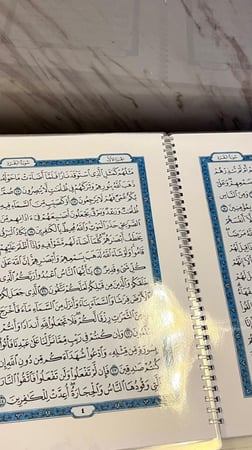 سُورَةُ البَقَرَةِ الجُزْءُ الأَوَّلُ
مَثَلُهُمْ كَمَثَلِ ٱلَّذِى ٱسْتَوْقَدَ نَارًا فَلَمَّآ أَضَآءَتْ مَا حَوْلَهُۥ
ذَهَبَ ٱللَّهُ بِنُورِهِمْ وَتَرَكَهُمْ فِى ظُلُمَٰتٍ لَّا يُبْصِرُونَ ١٧ صُمٌّۢ
بُكْمٌ عُمْىٌ فَهُمْ لَا يَرْجِعُونَ ١٨ أَوْ كَصَيِّبٍ مِّنَ ٱلسَّمَآءِ فِيهِ
ظُلُمَٰتٌ وَرَعْدٌ وَبَرْقٌ يَجْعَلُونَ أَصَٰبِعَهُمْ فِىٓ ءَاذَانِهِم مِّنَ
ٱلصَّوَٰعِقِ حَذَرَ ٱلْمَوْتِ وَٱللَّهُ مُحِيطٌۢ بِٱلْكَٰفِرِينَ ١٩ يَكَادُ ٱلْبَرْقُ
يَخْطَفُ أَبْصَٰرَهُمْ كُلَّمَآ أَضَآءَ لَهُم مَّشَوْا۟ فِيهِ وَإِذَآ أَظْلَمَ عَلَيْهِمْ
قَامُوا۟ وَلَوْ شَآءَ ٱللَّهُ لَذَهَبَ بِسَمْعِهِمْ وَأَبْصَٰرِهِمْ إِنَّ ٱللَّهَ عَلَىٰ
كُلِّ شَىْءٍ قَدِيرٌ ٢٠ يَٰٓأَيُّهَا ٱلنَّاسُ ٱعْبُدُوا۟ رَبَّكُمُ ٱلَّذِى
خَلَقَكُمْ وَٱلَّذِينَ مِن قَبْلِكُمْ لَعَلَّكُمْ تَتَّقُونَ ٢١ ٱلَّذِى جَعَلَ لَكُمُ
ٱلْأَرْضَ فِرَٰشًا وَٱلسَّمَآءَ بِنَآءً وَأَنزَلَ مِنَ ٱلسَّمَآءِ مَآءً فَأَخْرَجَ بِهِۦ
مِنَ ٱلثَّمَرَٰتِ رِزْقًا لَّكُمْ فَلَا تَجْعَلُوا۟ لِلَّهِ أَندَادًا وَأَنتُمْ
تَعْلَمُونَ ٢٢ وَإِن كُنتُمْ فِى رَيْبٍ مِّمَّا نَزَّلْنَا عَلَىٰ عَبْدِنَا فَأْتُوا۟
بِسُورَةٍ مِّن مِّثْلِهِۦ وَٱدْعُوا۟ شُهَدَآءَكُم مِّن دُونِ ٱللَّهِ إِن
كُنتُمْ صَٰدِقِينَ ٢٣ فَإِن لَّمْ تَفْعَلُوا۟ وَلَن تَفْعَلُوا۟ فَٱتَّقُوا۟ ٱلنَّارَ
ٱلَّتِى وَقُودُهَا ٱلنَّاسُ وَٱلْحِجَارَةُ أُعِدَّتْ لِلْكَٰفِرِينَ
٤
سُورَةُ البَقَرَةِ